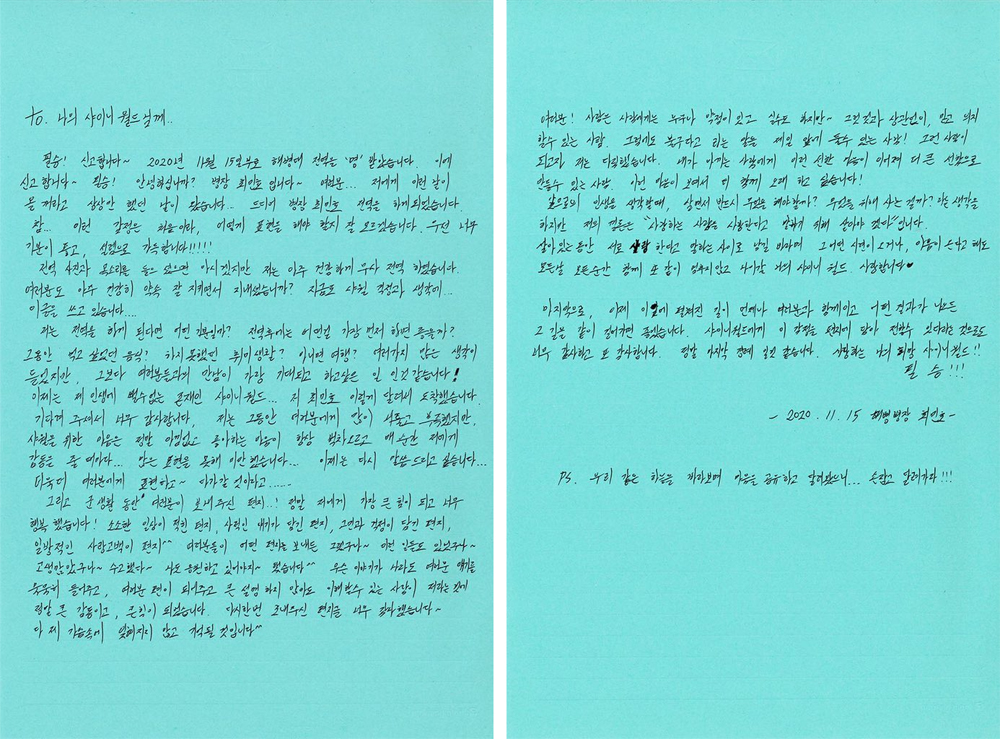 to. 나의 샤이니 월드님께..
필승! 신고합니다~ 2020년 11월 15일부로 해병대 전역을 '명' 받았습니다. 이에
신고합니다~ 필승! 안녕하십니까? 병장 최민호입니다~ 여러분... 저에게 이런 날이
올 꺼라고 상상만 했던 날이 왔습니다.. 드디어 병장 최민호 전역을 하게 되었습니다
참.. 이런 감정은 처음이라, 어떻게 표현을 해야 할지 잘 모르겠습니다. 우선 너무
기분이 좋고, 설렘으로 가득합니다!!!!!
전역 사진과 목소리를 듣고 있으면 아시겠지만 저는 아주 건강하게 무사 전역 하였습니다.
여러분도 아무 건강히 약속 잘 지키면서 지내셨습니까? 지금도 샤월 걱정과 생각에...
이 글을 쓰고 있습니다....
저는 전역을 하게 된다면 어떤 기분일까? 전역 후에는 어떤걸 가장 먼저 하면 좋을까?
그동안 먹고 싶었던 음식? 하지 못했던 취미생활? 아니면 여행? 여러가지 많은 생각이
들었지만, 그보다 여러분들과의 만남이 가장 기대되고 하고싶은 일 인것 같습니다!
이제는 제 인생에 뺄수없는 존재인 샤이니 월드... 저 최민호 이렇게 달려서 도착했습니다.
기다려 주셔서 너무 감사합니다. 저는 그동안 여러분에게 많이 서툴고 부족했지만,
샤월을 위한 마음은 정말 아낌없고 좋아하는 마음이 항상 벅차오르고 매 순간 저에게
감동을 줄 때마다... 많은 표현을 못해 미안했습니다... 이제는 다시 말씀드리고 싶습니다...
더욱더 여러분에게 표현하고~ 다가갈 것이라고.....
그리고 군 생활 동안 여러분이 보내주신 편지..! 정말 저에게 가장 큰 힘이 되고 너무
행복했습니다! 소소한 일상이 적힌 편지, 샤월인 얘기가 담긴 편지, 고민과 걱정이 담긴 편지,
일방적인 사랑고백이 편지^^ 여러분들이 어떤 편지를 보내든 그랬구나~ 이런 일들도 있었구나~
고생많았구나~ 수고했다~ 서로 응원하고 있어야지~ 했습니다^^ 무슨 이야기가 나와도 여러분 얘기를
묵묵히 들어주고, 여러분 편이 되어주고 큰 설명 하지 않아도 이해할수 있는 사람이 저라는 것에
정말 큰 감동이고, 큰 힘이 되었습니다. 다시한번 보내주신 편지들 너무 감사했습니다~
다 제 가슴속에 잊혀지지 않고 기억될 것입니다^^
여러분! 사람은 사람에게는 누구나 약점이 있고 실수도 하지만~ 그런것과 상관없이, 믿고 의지
할수 있는 사람. 그럼에도 불구하고 라는 말을 제일 앞에 둘수 있는 사람! 그런 사람이
되고자 저는 다짐했습니다. 내가 아끼는 사람에게 이런 선한 마음이 이어져 더 큰 선함으로
만들수 있는 사람. 이런 마음이 모여서 더 함께 오래 하고 싶습니다!
앞으로의 인생을 생각할때, 살면서 반드시 무엇을 해야할까? 무엇을 위해 사는 걸까? 라는 생각을
하지만 저의 결론은 "사랑하는 사람을 사랑한다고 말하기 위해 살아야 겠다"입니다.
살아 있는 동안 서로 사랑한다고 말하는 사이로 남길 바라며 그 어떤 시련이 오거나, 아픔이 온다고 해도
모든날 모든순간 함께 또 같이 멈추지 않고 나아갈 나의 샤이니 월드. 사랑합니다♥
마지막으로, 이제 이 앞에 펼쳐진 일이 언제나 여러분과 함께이고 어떤 결과가 나오든
그 길을 같이 걸어가면 좋겠습니다. 샤이니월드에게 이 감정을 편지에 담아 전할수 있다라는 것으로도
너무 감사하고 또 감사합니다. 정말 마지막 경례 일것 같습니다. 사랑하는 나의 희망 샤이니월드!!
필 승!!!
- 2020. 11. 15 해병 병장 최민호 -
PS. 우리 같은 하늘을 바라보며 마음을 공유하고 달려왔으니... 손잡고 달려가자!!!